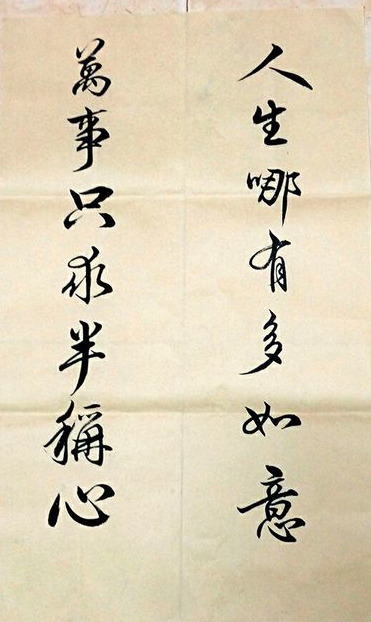 人生哪有多如意
萬事只求半稱心